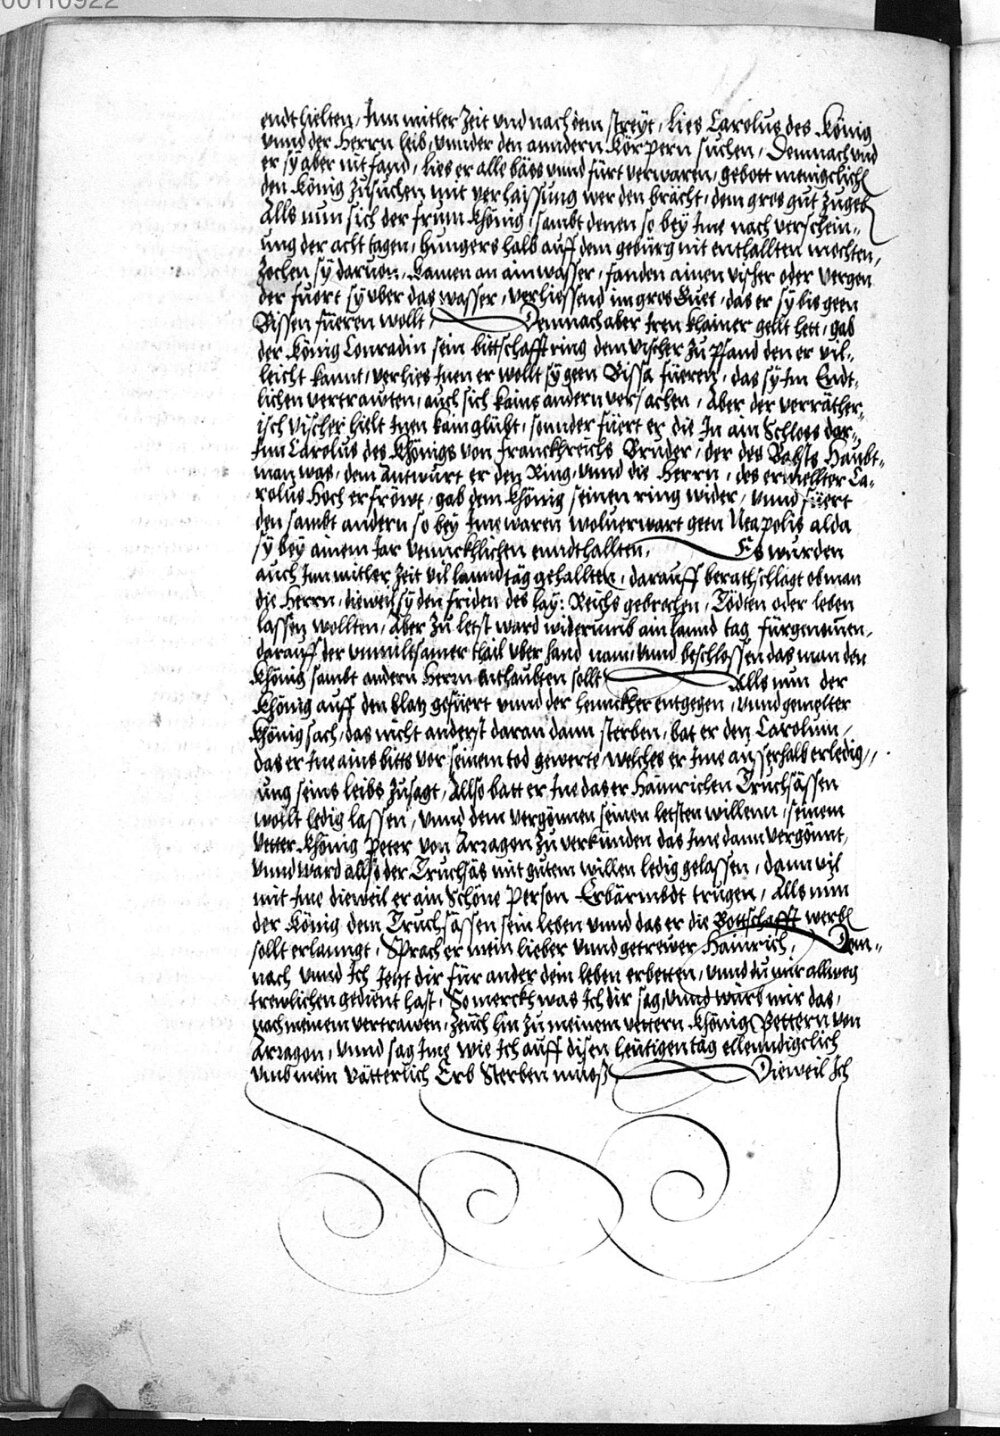 00110922
endthielten, Inn mitler Zeit und nach dem streyt, lies Carolus des König
unnd der Herrn leib, unnder den anndern Körpern suchen, Demnach und
er sy aber nit fand, lies er alle bäss unnd fürt verwaren, gebott menigclich
den König zusuchen mit verhaissung wer den brächt, dem gros gut zugeb
Alls nun sich der frum Khönig, sambt denen so bey Ime nach verschein-
ung der acht tagen, hungers halb auff dem gebürg nit enthallten mochten,
Zochen sy daruon, kamen an ain wasser, fanden ainen vischer oder vergen
der fuort sy uber das wasser, verhiessend im gros Guet, das er sy bis geen
Bissen füeren wollt Demnach aber Iren khainer gellt hett, gab
der König Conradin sein bittschafft ring dem vischer zu Pfand den er vil-
leicht kannt, verhies Inen er wollt sy geen Bissa füeren, das sy Im Endt-
lichen vertrawten, auch sich kains andern versachen, Aber der verräther-
isch vischer hielt Inen kain glübt, sonnder füert er die In ain Schloss dar-
Inn Carolus des Khönigs von Franckhreichs Bruder, der des Bapsts Haubt-
man was, dem Antwurt er den Ring, unnd die Herrn, des ermellter Ca-
rolus Hoch erfröwt, gab dem Khönig seinen ring wider, unnd füert
den sambt andern so bey Ime waren wolverwart geen Neapolis alda
sy bey ainem Jar vennckhlichen enndthallten. Es wurden
auch Inn mitler Zeit vil lanndtäg gehallten, darauff berathschlagt ob man
die Herrn, dieweil sy den friden des hay: Reichs gebrochen, Tödten oder leben
lassen wollten, Aber zu letst ward widerumb ain lannd tag fürgenomen,
darauff der unmiltsamer thail uber hand nam, unnd beschlossen das man den
Khönig sambt andern Herrn enthaubten sollt Alls nun der
Khönig auff den blatz gefüert unnd der henncker entgegen, unnd gemelter
Khönig sach, das nicht anderst daran dann sterben, bat er den Carolum,
das er Ine ains bitts vor seinem tod gewerte, welches er Ime ausserhalb erledig,,
ung seins leibs zusagt, Allso batt er Ine das er Hainrichen Truchsässen
wollt ledig lassen, unnd dem vergönnen seinen letsten willenn, seinem
Vetter Khönig Peter von Arragon zu verkünden das Ime dann vergönnt,
unnd ward allso der Truchsäs mit gutem willen ledig gelassen, dann vil
mit Ime dieweil er ain Schöne Person Erbärmbdt trugen, Alls nun
der König dem Truchsässen sein leben unnd das er die Bottschafft werb
sollt erlanngt, Sprach er mein lieber unnd getrewer Hainrich, Dem-
nach unnd Ich Jetzt dir für ander dein leben erbetten, unnd du mir allweg
trewlichen gedient hast, So merckh was Ich dir sag, unnd würb mir das,
nach meinem vertrawen, Zeuch hin zu meinem vettern Khönig Pettern von
Arragon, unnd sag Ime wie Ich auff disen heutigen tag ellenndigclich
umb mein vätterlich Erb Sterben muoß Dieweil Ich